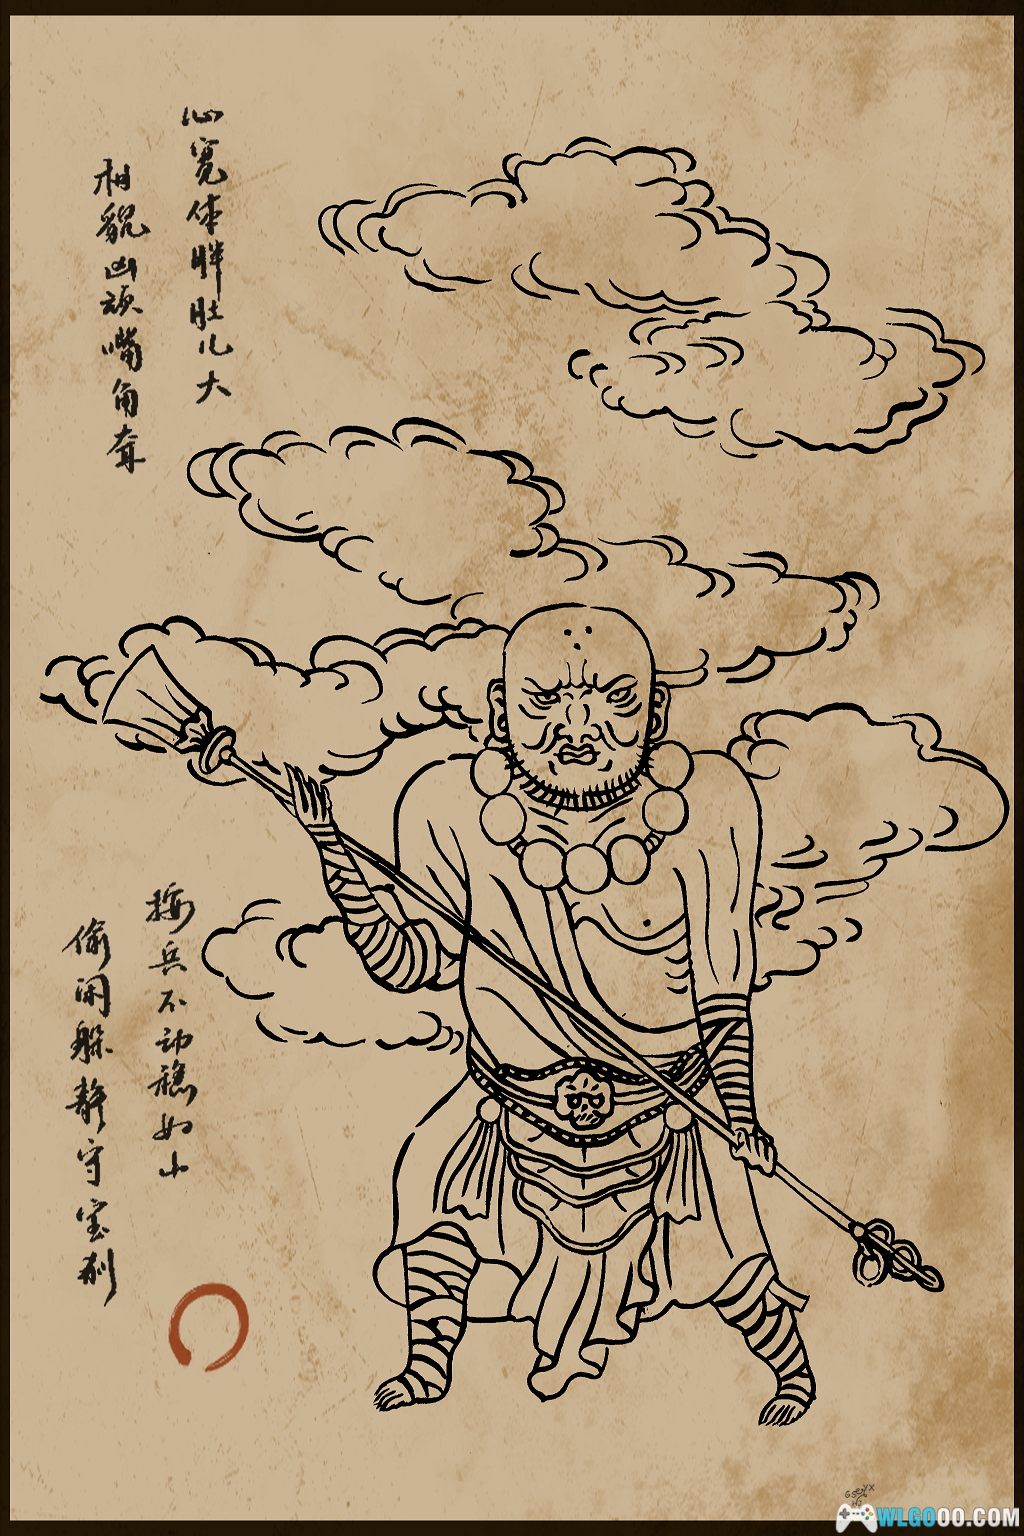 心宽体胖肚儿大
相貌凶顽嘴角奔
按兵不动稳如山
偷闲躲静守宝刹
WLGOOO.COM